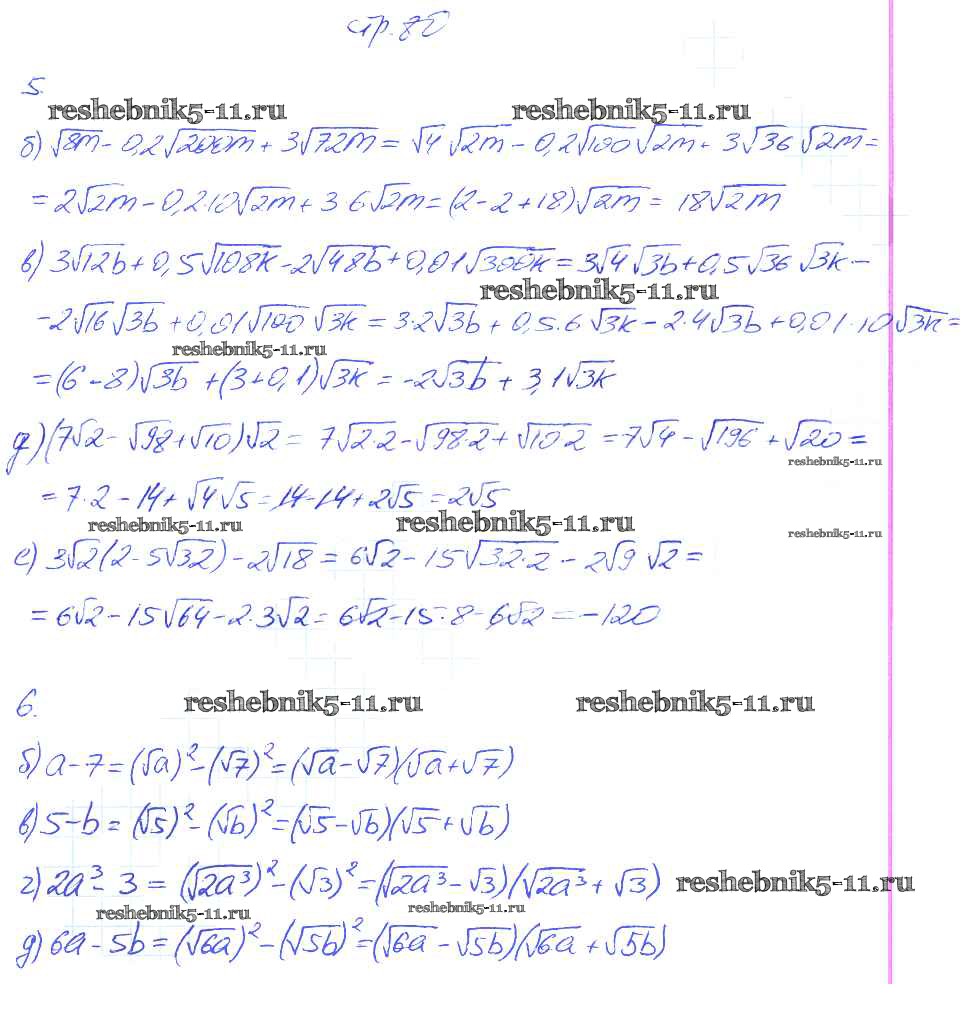 стр. 80
5.
reshebnik5-11.ru reshebnik5-11.ru
б) √8m - 0,2√200m + 3√72m = √4 √2m - 0,2√100 √2m + 3√36 √2m =
= 2√2m - 0,2·10√2m + 3·6√2m = (2-2+18)√2m = 18√2m
в) 3√12b + 0,5√108k - 2√48b + 0,01√300k = 3√4 √3b + 0,5√36 √3k -
reshebnik5-11.ru
-2√16 √3b + 0,01√100 √3k = 3·2√3b + 0,5·6√3k - 2·4√3b + 0,01·10√3k =
reshebnik5-11.ru
= (6-8)√3b + (3+0,1)√3k = -2√3b + 3,1√3k
д) (7√2 - √98 + √10)√2 = 7√2·2 - √98·2 + √10·2 = 7√4 - √196 + √20 =
reshebnik5-11.ru
= 7·2 - 14 + √4 √5 = 14-14+2√5 = 2√5
reshebnik5-11.ru reshebnik5-11.ru reshebnik5-11.ru
е) 3√2(2-5√32) - 2√18 = 6√2 - 15√32·2 - 2√9 √2 =
= 6√2 - 15√64 - 2·3√2 = 6√2 - 15·8 - 6√2 = -120
6.
reshebnik5-11.ru reshebnik5-11.ru
б) a-7 = (√a)² - (√7)² = (√a - √7)(√a + √7)
в) 5-b = (√5)² - (√b)² = (√5 - √b)(√5 + √b)
г) 2a³ - 3 = (√2a³)² - (√3)² = (√2a³ - √3)(√2a³ + √3) reshebnik5-11.ru
reshebnik5-11.ru reshebnik5-11.ru
д) 6a - 5b = (√6a)² - (√5b)² = (√6a - √5b)(√6a + √5b)